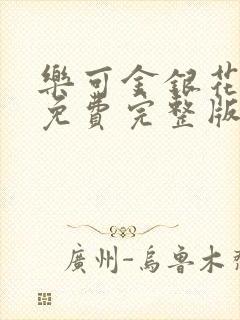 樂可金銀花
免費完整版
廣州-烏魯木齊